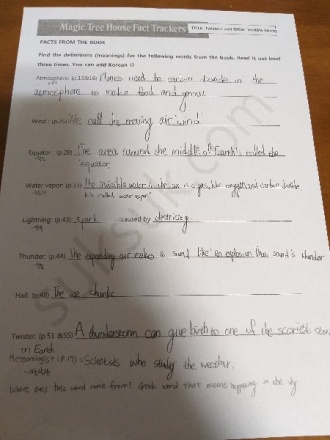 Magic Tree House Fact Trackers
FACTS FROM THE BOOK
Find the definitions (meanings) for the following words from the book. Read it out loud
three times. You can add Korean ☺
Atmosphere (p.15&16) Plants need the carbon dioxide in the
atmosphere to make food and grow.
Wind: We call the moving air wind
Equator (p.26) The area around the middle of Earth's called the
equator.
Water vapor (p.31) The invisible water in the air is a gas, like oxygen and carbon dioxide
It's called water vapor
Lightning (p.43) spark caused by electricity
Thunder (p.44) The expanding air makes a sound like an explosion this sound is thunder
Hail (p.48) The ice chunks
Twister (p.51 &55) A thunderstorm can give birth to one of the scariest storm
on Earth
Meteorologist (P.17) = Scientists who study the weather.
Where does this word come from? Greek word that means happening in the sky
sulksulk.com